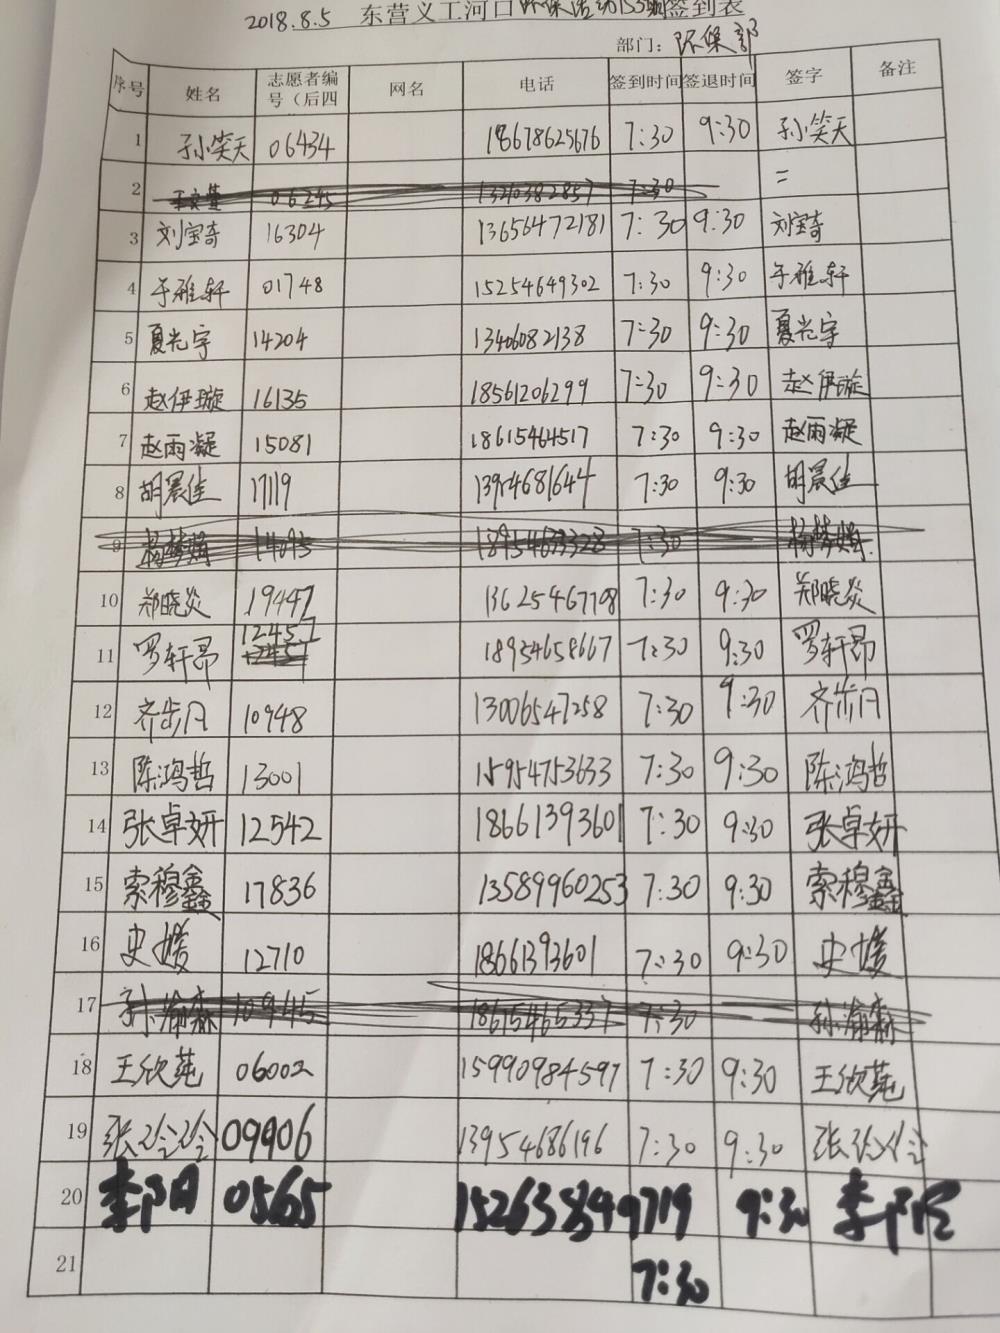 2018.8.5 东营义工河口环保活动153期签到表
部门：环保部
序号 姓名 志愿者编号（后四 网名 电话 签到时间 签退时间 签字 备注
1 孙笑天 06434 18678625676 7:30 9:30 孙笑天
2 06245 13210382857 7:30 =
3 刘宝奇 16304 13656472181 7:30 9:30 刘宝奇
4 于雅轩 01748 15254649302 7:30 9:30 于雅轩
5 夏光宇 14204 13406082138 7:30 9:30 夏光宇
6 赵伊璇 16135 18561206299 7:30 9:30 赵伊璇
7 赵雨凝 15081 18615464517 7:30 9:30 赵雨凝
8 胡晨佳 17119 13954681644 7:30 9:30 胡晨佳
9 杨梦娟 14095 18954633328 7:30 杨梦娟
10 郑晓炎 19447 13625467708 7:30 9:30 郑晓炎
11 罗轩昂 12457 18954658667 7:30 9:30 罗轩昂
12 齐步凡 10948 13006547258 7:30 9:30 齐步凡
13 陈鸿哲 13001 15954753633 7:30 9:30 陈鸿哲
14 张卓妍 12542 18661393601 7:30 9:30 张卓妍
15 索穆鑫 17836 13589960253 7:30 9:30 索穆鑫
16 史媛 12710 18661393601 7:30 9:30 史媛
17 孙瀚森 10945 18615465337 7:30 孙瀚森
18 王欣莼 06002 15990984597 7:30 9:30 王欣莼
19 张泠泠 09906 13954686196 7:30 9:30 张泠泠
20 李阳 0565 15263849719 9:30 李阳
21 7:30